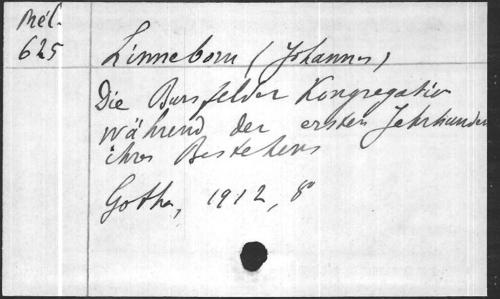 Mél.
625
Linneborn (Johannes)
Die Bursfelder Kongregation
während der ersten Jahrhunder
ihres Bestehens
Gotha, 1912, 8°